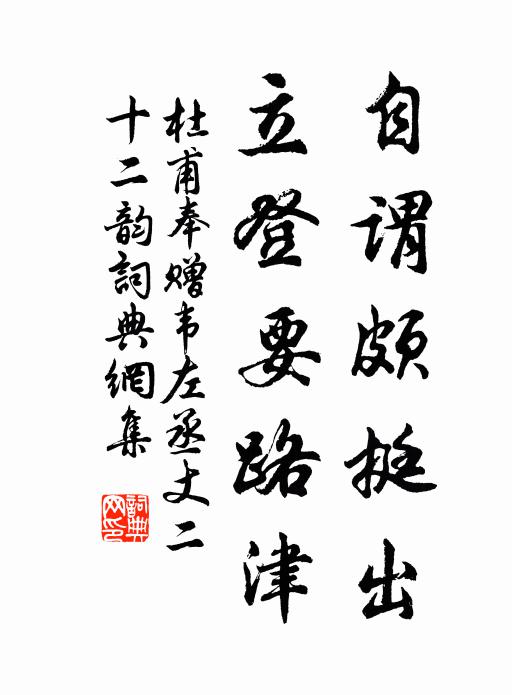 自谓颇挺出
立登要路津
杜甫奉赠韦左丞丈二
十二韵詞典網集
詞典网印